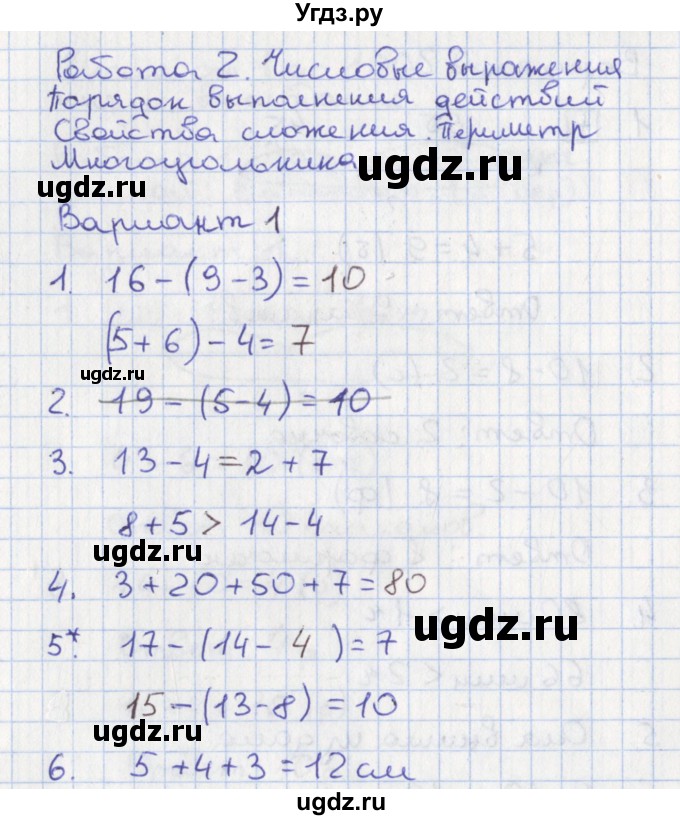 Угдз.ру
Работа 2. Числовые выражения
Порядок выполнения действий
Свойства сложения. Периметр
Многоугольника
ugdz.ru
ugdz.ru
Вариант 1
ugdz.ru
1. 16 - (9 - 3) = 10
(5 + 6) - 4 = 7
ugdz.ru
2. 19 - (5 - 4) = 10
3. 13 - 4 = 2 + 7
8 + 5 > 14 - 4
ugdz.ru
4. 3 + 20 + 50 + 7 = 80
ugdz.ru
5*. 17 - (14 - 4 ) = 7
15 - (13 - 8) = 10
ugdz.ru
6. 5 + 4 + 3 = 12 см
ugdz.ru